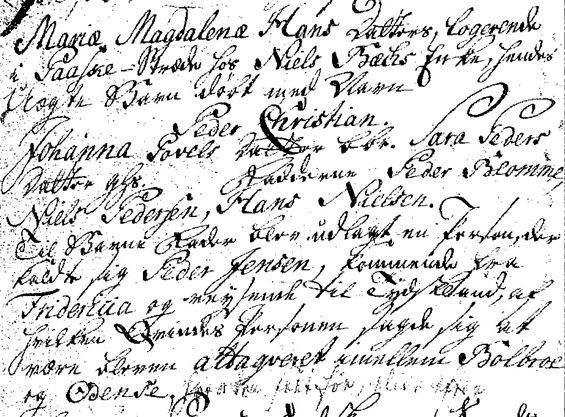 Mariæ Magdalenæ Hans Datters, logerende
i Paaske-Stræde hos Niels Bechs Enke, hendes
Uægte Barn døbt med Navn
Peder Christian.
Johanna Povels Datter bar. Sara Peders
Datter gik. Fadderne Peder Blomme,
Niels Pedersen, Hans Nielsen.
Til Barne Fader blev udlagt en Person, der
kaldte sig Peder Jensen, kommende fra
Fridericia og reysende til Tydskland, af
hvilken Qvindes Personen sagde sig at
være bleven attaqveret imellem Bolbroe
og Odense,